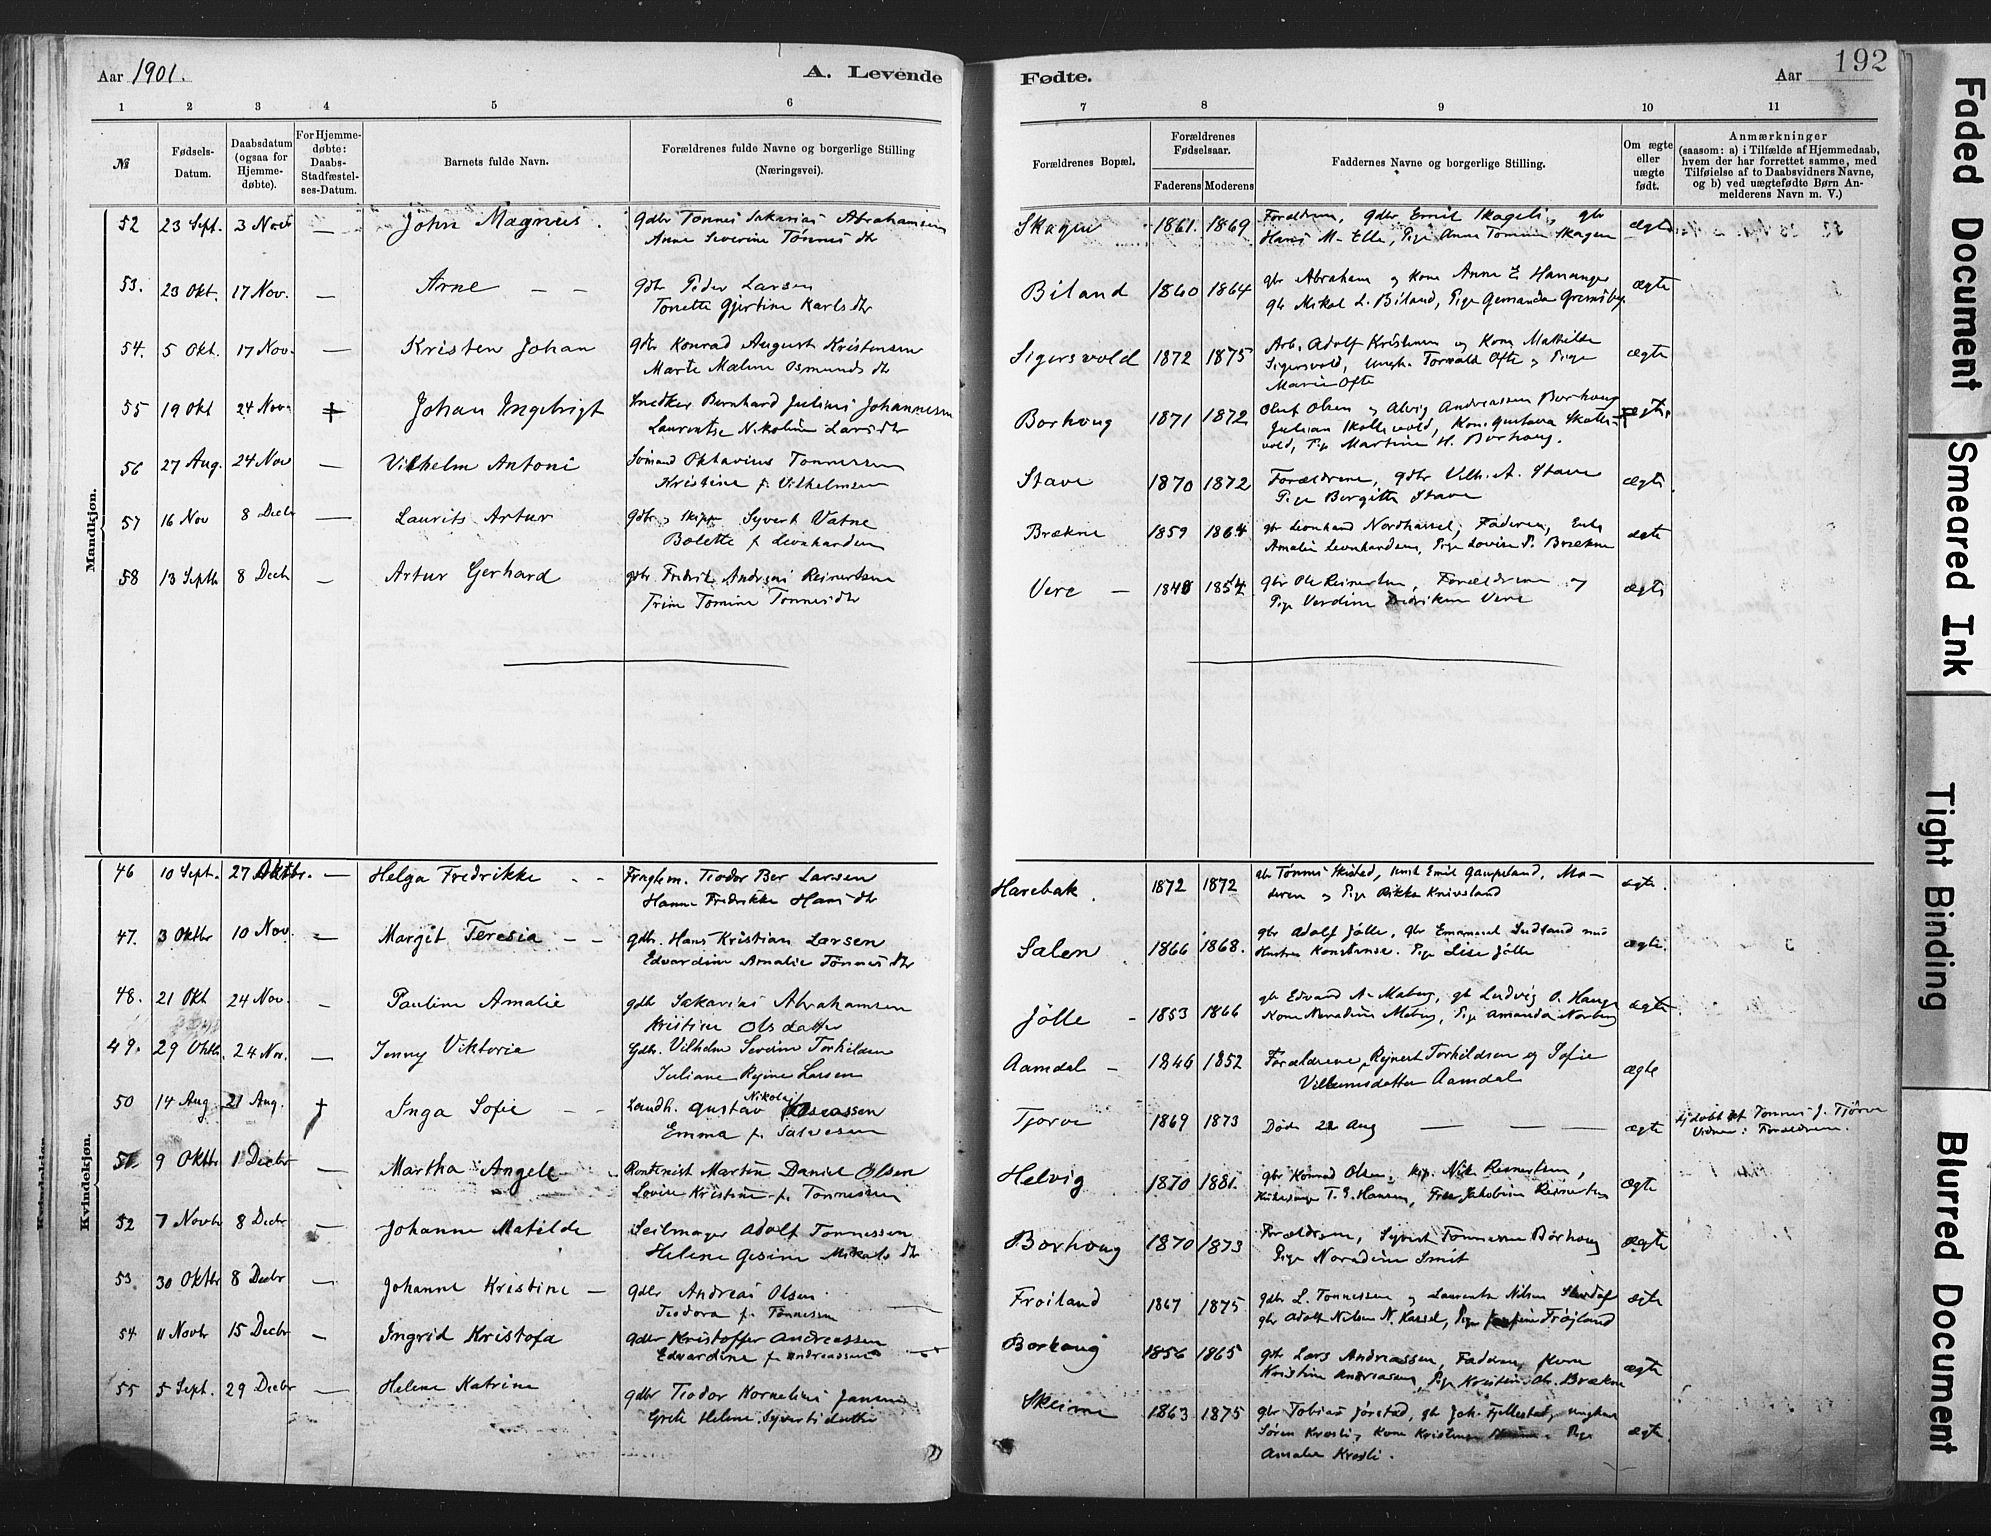 Aar 1901.
A. Levende Fødte.
Aar
192
1 2 3 4 5 6 7 8 9 10 11
№
Fødsels-Datum.
Daabsdatum (ogsaa for Hjemme-døbte).
For Hjemme-døbte: Daabs-Stadfæstel-ses-Datum.
Barnets fulde Navn.
Forældrenes fulde Navne og borgerlige Stilling (Næringsvei).
Forældrenes Bopæl.
Forældrenes Fødselsaar.
Faderens Moderens
Faddernes Navne og borgerlige Stilling.
Om ægte eller uægte født.
Anmærkninger
(saasom: a) i Tilfælde af Hjemmedaab, hvem der har forrettet samme, med Tilføielse af to Daabsvidners Navne, og b) ved uægtefødte Børn An-melderens Navn m. V.)
Mandkjøn.
52 23 Sept. 3 Novb — John Magnus. gdbr Tønnes Sakarias Abrahamsen Skagen 1861. 1869 Forældrene, gdbr Emil Skageli, gbr ægte
Anne Severine Tønnesdtr Hans M. Elle, Pige Anne Tomine Skagen
53. 23 Okt. 17 Nov. — Arne — — gdbr Peder Larsen Biland 1860 1864 gbr Abraham og Kone Anne E. Hananger ægte
Tonette Gjertine Karlsdtr gbr Mikal L. Biland, Pige
54. 5 Okt. 17 Nov. — Kristen Johan gdbr Konrad August Kristensen Sigersvold 1872 1875 Arb. Adolf Kristensen og Kone Mathilde ægte
Marte Maline Osmundsdtr Sigersvold, Ungk. Torvald Ofte og Pige
Marie Ofte
55 19 Okt 24 Nov. Johan Ingebrigt Snedker Bernhard Julius Johannesen Borhoug 1871 1872 Oluf Olsen og Alvig Andreassen Borhoug ægte
Laurentse Nikoline Larsdtr Julian Skollevold, Kone Gustava Skolle-
vold, Pige Martine H. Borhoug.
56 27 Aug. 24 Nov — Vilhelm Antoni Sømand Oktavius Tønnessen Stave 1870 1872 Forældrene, gdbr Vilh. A. Stave ægte
Kristine f. Vilhelmsen Pige Birgitte Stave
57 16 Nov 8 Decbr — Laurits Artur gdbr, Skipp. Syvert Vatne Brækne 1859 1864 gbr Leonhard Nordhassel, Faderen, Enke ægte
Bolette f. Leonhardsen Amalie Leonhardsen, Pige Lovise P. Brækne
58 13 Septb 8 Decb — Artur Gerhard gdbr Fredrik Andreas Reinertsen Vere — 1840 1854 gbr Ole Reinertsen, Forældrene og ægte
Trine Tomine Tønnesdtr Pige Verdine Vere
Kvindekjøn.
46 10 Sept. 27 Oktbr. — Helga Fredrikke — — Fragtem. Teodor Ber Larsen Harebak. 1872 1872 gbr Tønnes Skisted, Emil Gaupeland, Mo- ægte.
Hanne Fredrikke Hansdtr deren og Pige Rikka Knivsland
47. 3 Oktbr 10 Nov. — Margit Teresia — — gdbr. Hans Kristian Larsen Salen 1866 1868. gbr Adolf Jølle, gbr Emanuel med ægte
Edvardine Amalie Tønnesdtr Hustru Konstanse. Pige Lise Jølle
48. 21 Okt 24 Nov. — Pauline Amalie gdbr Sakarias Abrahamsen Jölle — 1853 1866 gbr Edvard A. Maberg, gbr Ludvig O. Hauge ægte
Kristine Olsdatter Kone Neradine Maberg, Pige Amanda Norberg
49. 29 Oktb. 24 Nov. — Jenny Viktoria Gdbr. Vilhelm Severin Torkildsen Aamdal — 1846 1852 Forældrene, Rejnert Torkildsen og Sofie ægte
Juliane Regine Larsen Villumsdatter Aamdal
50 14 Aug 21 Aug. † Inga Sofie — — Landh. Gustav Nikolai Tjorve 1869 1873 Døde 22 Aug — — — ægte Hjdøbt af Tønnes J. Tjörve
Emma f. Salvesen Vidner: Forældrene.
51 9 Oktbr 1 Decbr — Martha Angell — Rentenist Martin Daniel Olsen Helvig 1870 1881. gbr Konrad Olsen, skip. Nils Reinertsen, ægte
Lovise Kristine f. Tønnesen T. G. Hansen, Frue Jakobine Reinertsen
52 7 Novbr 8 Decbr — Johanne Matilde Seilmager Adolf Tønnessen Borhoug 1870 1873 Forældrene, Syvert Tønnessen Borhoug ægte
Helene Gesine Mikalsdtr Pige Noradine Smit
53 30 Oktbr 8 Decbr — Johanne Kristine — gdbr Andreas Olsen Froiland 1867 1875 gdbr L. Tønnessen og Laurentse Nilsen ægte
Teodora f. Tønnesen gbr Adolf Nilsen N. Hassel, Pige Tröjland
54 11 Novbr 15 Decbr — Ingrid Kristofa gdbr Kristoffer Andreassen Borhoug 1856 1865 gbr Lars Andreassen, Faderen, Kone ægte
Edvardine f. Andreassen Kristine Andreasen, Pige Kristin Brækne
55 5 Sept. 29 Decbr — Helene Katrine gdbr Teodor Kornelius Jansen Skeime 1863 1875 gbr Tobias Jørstad, gbr Joh. Fjellestad, ungkar ægte
Grete Helene Syvertsdatter Søren Krosli, Kone Kristense Pige
Amalie Krosli.
Faded Document
Smeared Ink
Tight Binding
Blurred Document